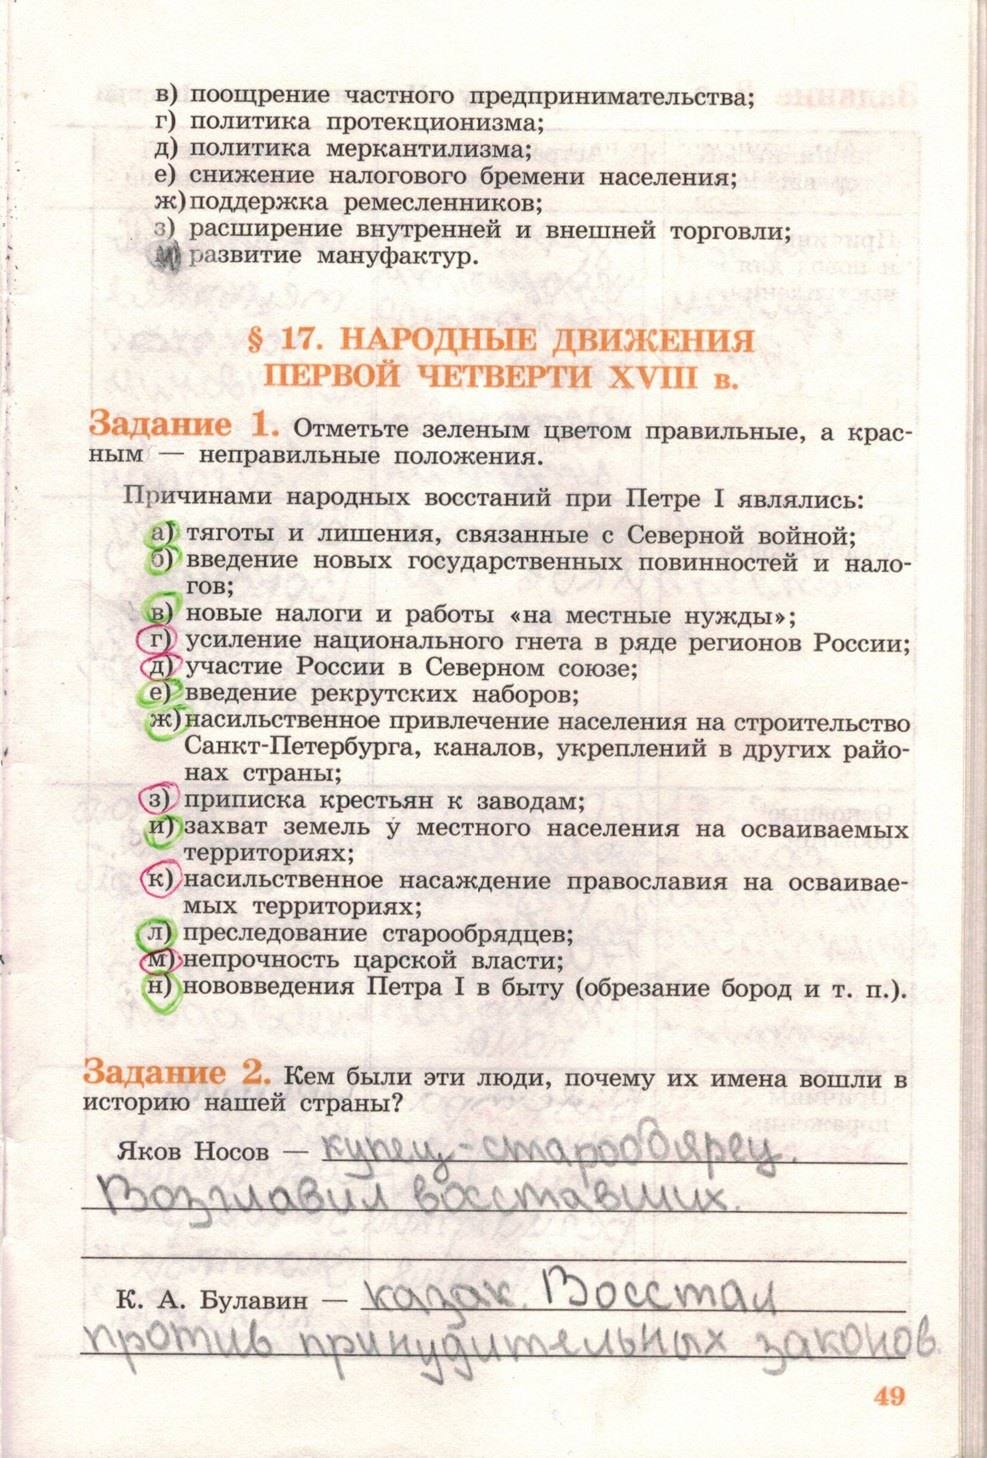 в) поощрение частного предпринимательства;
г) политика протекционизма;
д) политика меркантилизма;
е) снижение налогового бремени населения;
ж) поддержка ремесленников;
з) расширение внутренней и внешней торговли;
и) развитие мануфактур.
§ 17. НАРОДНЫЕ ДВИЖЕНИЯ
ПЕРВОЙ ЧЕТВЕРТИ XVIII в.
Задание 1. Отметьте зеленым цветом правильные, а крас-
ным — неправильные положения.
Причинами народных восстаний при Петре I являлись:
а) тяготы и лишения, связанные с Северной войной;
б) введение новых государственных повинностей и нало-
гов;
в) новые налоги и работы «на местные нужды»;
г) усиление национального гнета в ряде регионов России;
д) участие России в Северном союзе;
е) введение рекрутских наборов;
ж) насильственное привлечение населения на строительство
Санкт-Петербурга, каналов, укреплений в других райо-
нах страны;
з) приписка крестьян к заводам;
и) захват земель у местного населения на осваиваемых
территориях;
к) насильственное насаждение православия на осваивае-
мых территориях;
л) преследование старообрядцев;
м) непрочность царской власти;
н) нововведения Петра I в быту (обрезание бород и т. п.).
Задание 2. Кем были эти люди, почему их имена вошли в
историю нашей страны?
Яков Носов — купец-старообоярец.
Возглавил восставших.
К. А. Булавин — казак. Восстал
против принудительных законов.
49